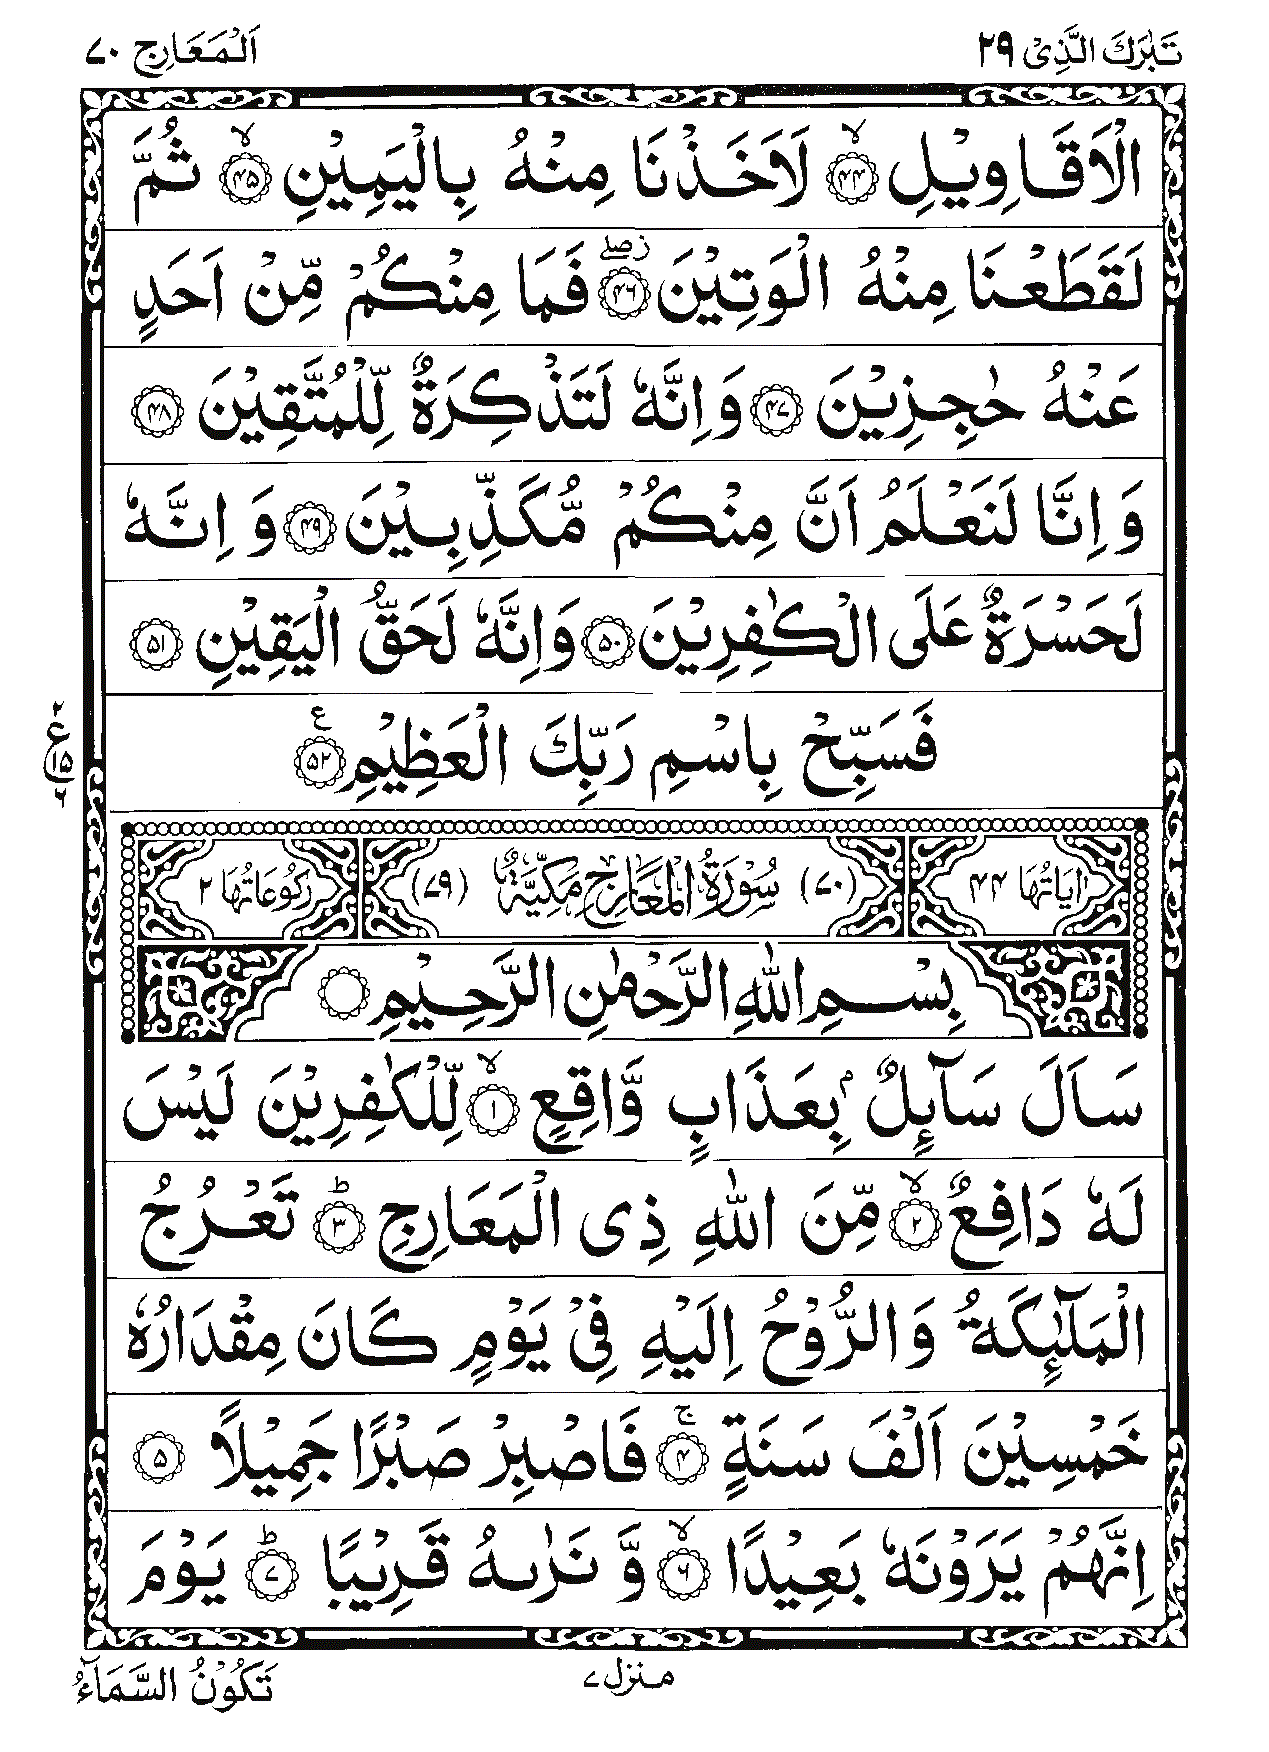 تَبٰرَكَ الَّذِیْ ۲۹
اَلْمَعَارِجِ ۷۰
الْاَقَاوِیْلِ ﴿۴۴﴾ۙ لَاَخَذْنَا مِنْهُ بِالْیَمِیْنِ ﴿۴۵﴾ۙ ثُمَّ
لَقَطَعْنَا مِنْهُ الْوَتِیْنَ ﴿۴۶﴾ۖز فَمَا مِنْكُمْ مِّنْ اَحَدٍ
عَنْهُ حٰجِزِیْنَ ﴿۴۷﴾ وَاِنَّهٗ لَتَذْكِرَةٌ لِّلْمُتَّقِیْنَ ﴿۴۸﴾
وَ اِنَّا لَنَعْلَمُ اَنَّ مِنْكُمْ مُّكَذِّبِیْنَ ﴿۴۹﴾ وَ اِنَّهٗ
لَحَسْرَةٌ عَلَی الْكٰفِرِیْنَ ﴿۵۰﴾ وَاِنَّهٗ لَحَقُّ الْیَقِیْنِ ﴿۵۱﴾
فَسَبِّحْ بِاسْمِ رَبِّكَ الْعَظِیْمِ ﴿۵۲﴾ ع
۲
ع ۱۵
۶
اٰیَاتُهَا ۴۴ (۷۰) سُوْرَةُ الْمَعَارِجِ مَكِّیَّةٌ (۷۹) رُكُوْعَاتُهَا ۲
بِسْمِ اللّٰهِ الرَّحْمٰنِ الرَّحِیْمِ
سَاَلَ سَآئِلٌۢ بِعَذَابٍ وَّاقِعٍ ﴿۱﴾ۙ لِّلْكٰفِرِیْنَ لَیْسَ
لَهٗ دَافِعٌ ﴿۲﴾ۙ مِّنَ اللّٰهِ ذِی الْمَعَارِجِ ﴿۳﴾ؕ تَعْرُجُ
الْمَلٰٓئِكَةُ وَالرُّوْحُ اِلَیْهِ فِیْ یَوْمٍ كَانَ مِقْدَارُهٗ
خَمْسِیْنَ اَلْفَ سَنَةٍ ﴿۴﴾ۚ فَاصْبِرْ صَبْرًا جَمِیْلًا ﴿۵﴾
اِنَّهُمْ یَرَوْنَهٗ بَعِیْدًا ﴿۶﴾ۙ وَّ نَرٰىهُ قَرِیْبًا ﴿۷﴾ؕ یَوْمَ
منزل ۷
تَكُوْنُ السَّمَآءُ